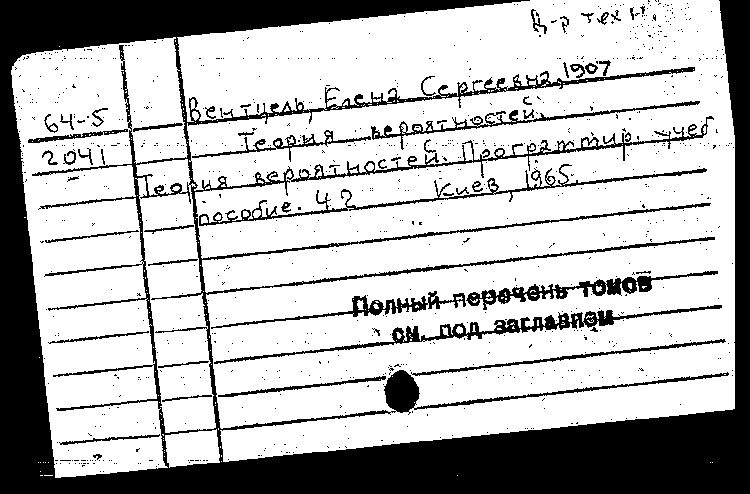 Д-р техн.
64-5
2041
Вентцель, Елена Сергеевна, 1907
Теория вероятностей.
Теория вероятностей. Программир. учеб.
пособие. Ч 2 Киев, 1965.
Полный перечень томов
см. под заглавием